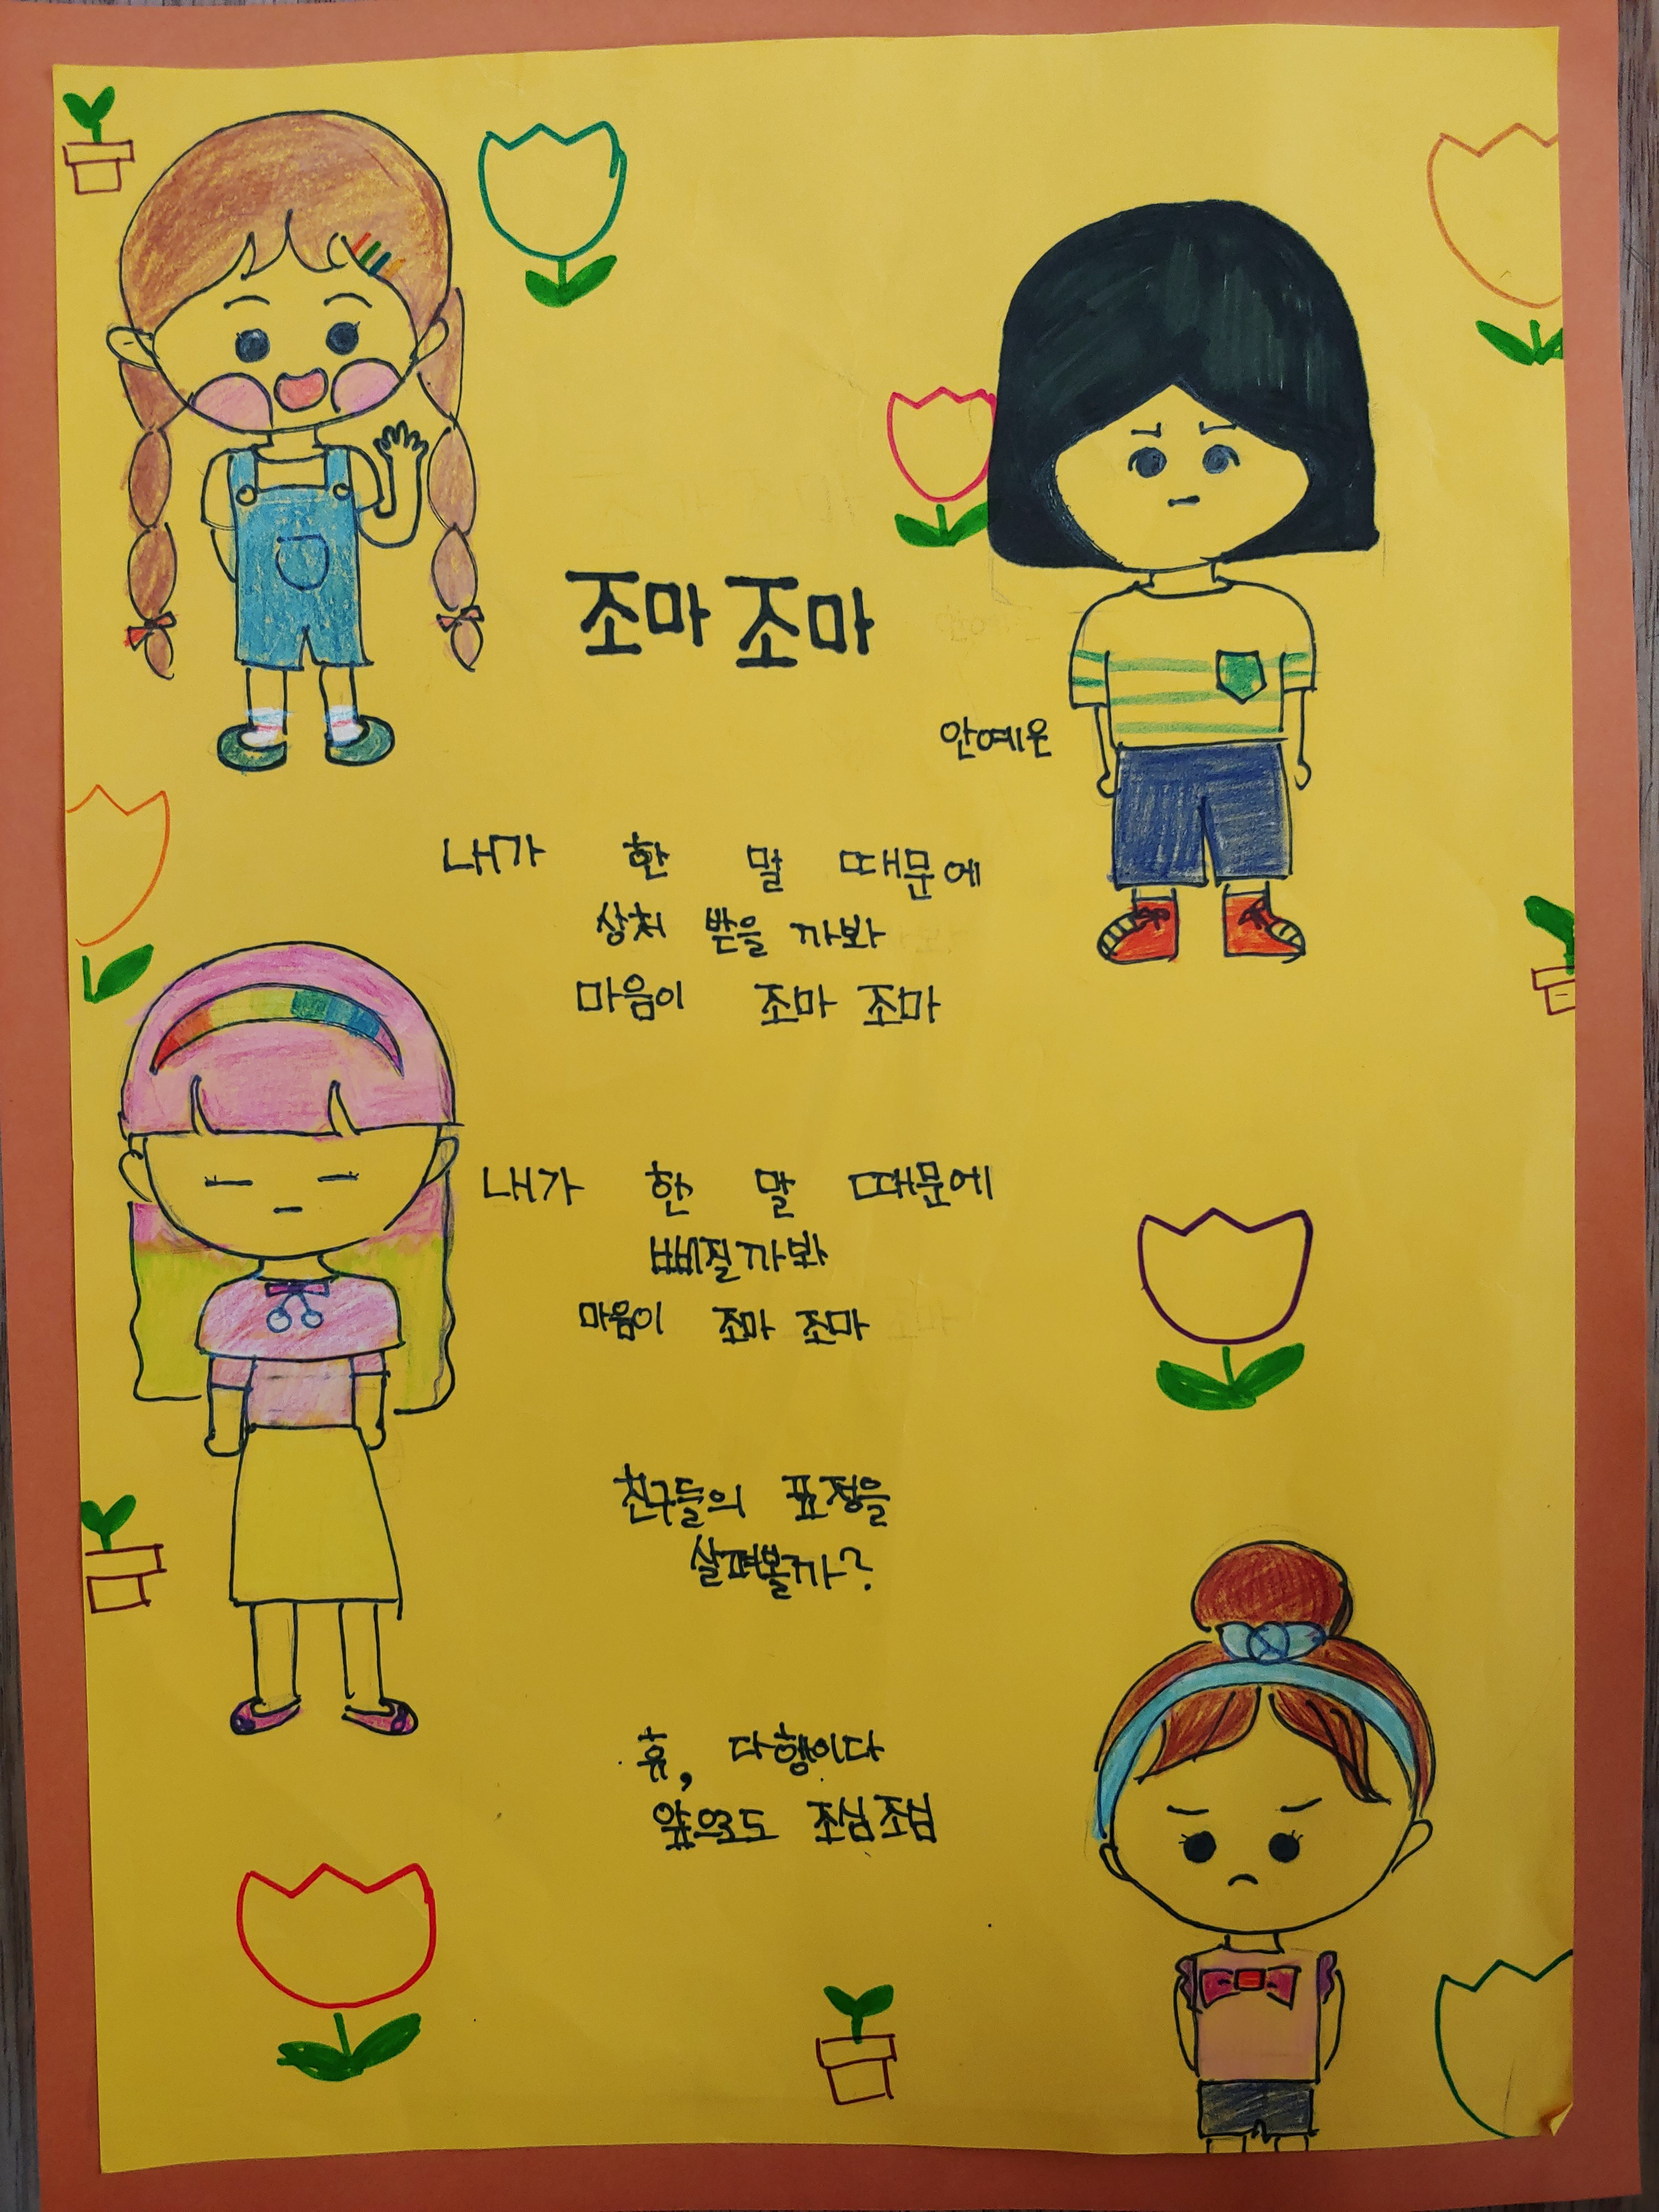 조마 조마
안예은
내가 한 말 때문에
상처 받을 까봐
마음이 조마 조마
내가 한 말 때문에
삐질까봐
마음이 조마 조마
친구들의 표정을
살펴볼까?
휴, 다행이다
앞으로도 조심조심